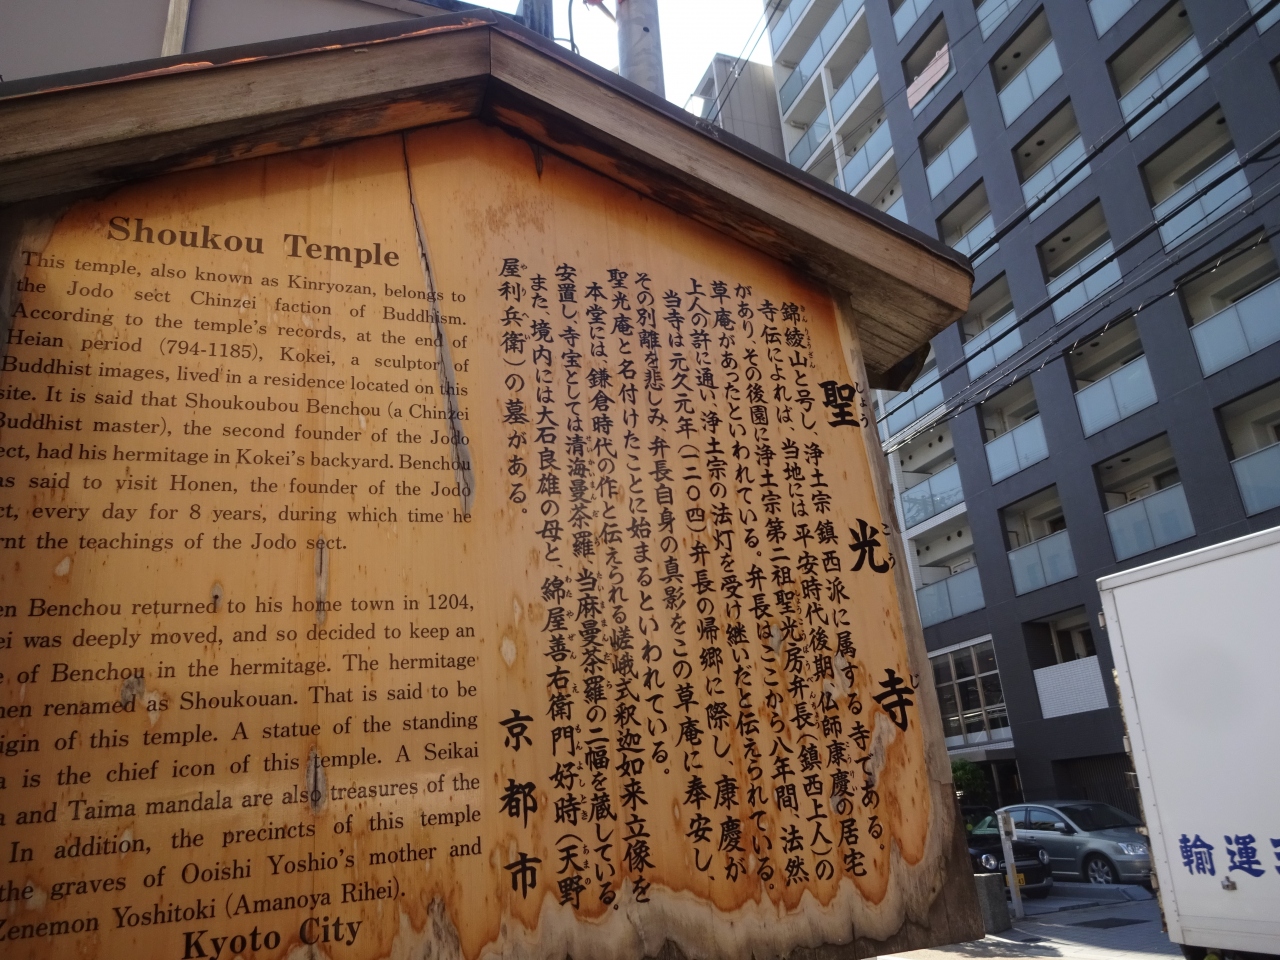 Shoukou Temple
This temple, also known as Kinryozan, belongs to
the Jodo sect Chinzei faction of Buddhism.
According to the temple's records, at the end of
Heian period (794-1185), Kokei, a sculptor of
Buddhist images, lived in a residence located on this
site. It is said that Shoukoubou Benchou (a Chinzei
Buddhist master), the second founder of the Jodo
ect, had his hermitage in Kokei's backyard. Benchou
as said to visit Honen, the founder of the Jodo
ct, every day for 8 years, during which time he
rnt the teachings of the Jodo sect.
en Benchou returned to his home town in 1204,
ei was deeply moved, and so decided to keep an
e of Benchou in the hermitage. The hermitage
hen renamed as Shoukouan. That is said to be
igin of this temple. A statue of the standing
a is the chief icon of this temple. A Seikai
a and Taima mandala are also treasures of the
In addition, the precincts of this temple
the graves of Ooishi Yoshio's mother and
Zenemon Yoshitoki (Amanoya Rihei).
Kyoto City
聖光寺
しょうこうじ
錦綾山と号し、浄土宗鎮西派に属する寺である。
寺伝によれば、当地には平安時代後期、仏師康慶の居宅
があり、その後園に浄土宗第二祖聖光房弁長(鎮西上人)の
草庵があったといわれている。弁長はここから八年間、法然
上人の許に通い、浄土宗の法灯を受け継いだと伝えられている。
当寺は元久元年(一二〇四)弁長の帰郷に際し、康慶が
その別離を悲しみ、弁長自身の真影をこの草庵に奉安し、
聖光庵と名付けたことに始まるといわれている。
本堂には、鎌倉時代の作と伝えられる嵯峨式釈迦如来立像を
安置し、寺宝としては清海曼荼羅、当麻曼荼羅の二幅を蔵している。
また、境内には大石良雄の母と、綿屋善右衛門好時(天野
屋利兵衛)の墓がある。
京都市
輸運